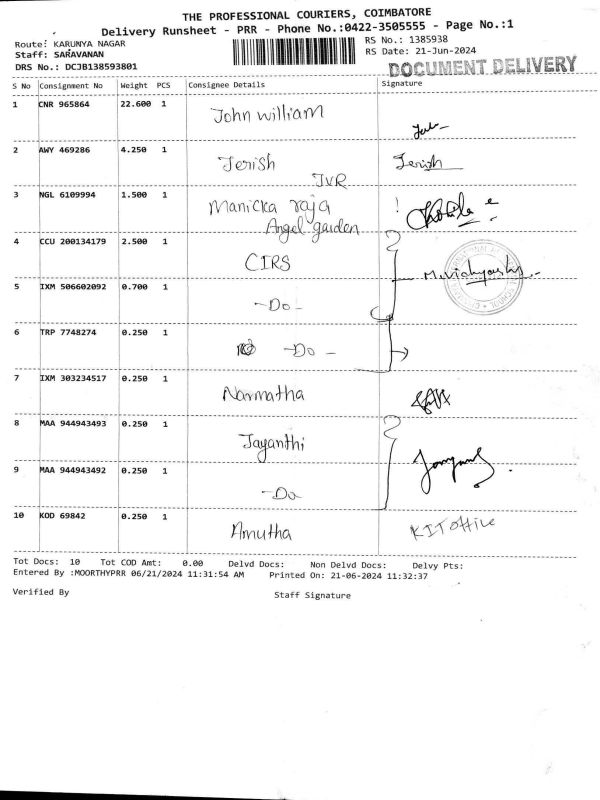 THE PROFESSIONAL COURIERS, COIMBATORE
Delivery Runsheet - PRR - Phone No.:0422-3505555 - Page No.:1
Route: KARUNYA NAGAR
Staff: SARAVANAN
DRS No.: DCJB138593801
RS No.: 1385938
RS Date: 21-Jun-2024
DOCUMENT DELIVERY
S No Consignment No Weight PCS Consignee Details Signature
1 CNR 965864 22.600 1 John william
2 AWY 469286 4.250 1 Jerish Jerish
JVR
3 NGL 6109994 1.500 1 Manicka raja
Angel garden
4 CCU 200134179 2.500 1 CIRS
5 IXM 506602092 0.700 1 -Do-
6 TRP 7748274 0.250 1 -Do-
7 IXM 303234517 0.250 1 Narmatha
8 MAA 944943493 0.250 1 Jayanthi
9 MAA 944943492 0.250 1 -Do
10 KOD 69842 0.250 1 Amutha KIT office
Tot Docs: 10 Tot COD Amt: 0.00 Delvd Docs: Non Delvd Docs: Delvy Pts:
Entered By :MOORTHYPRR 06/21/2024 11:31:54 AM Printed On: 21-06-2024 11:32:37
Verified By Staff Signature